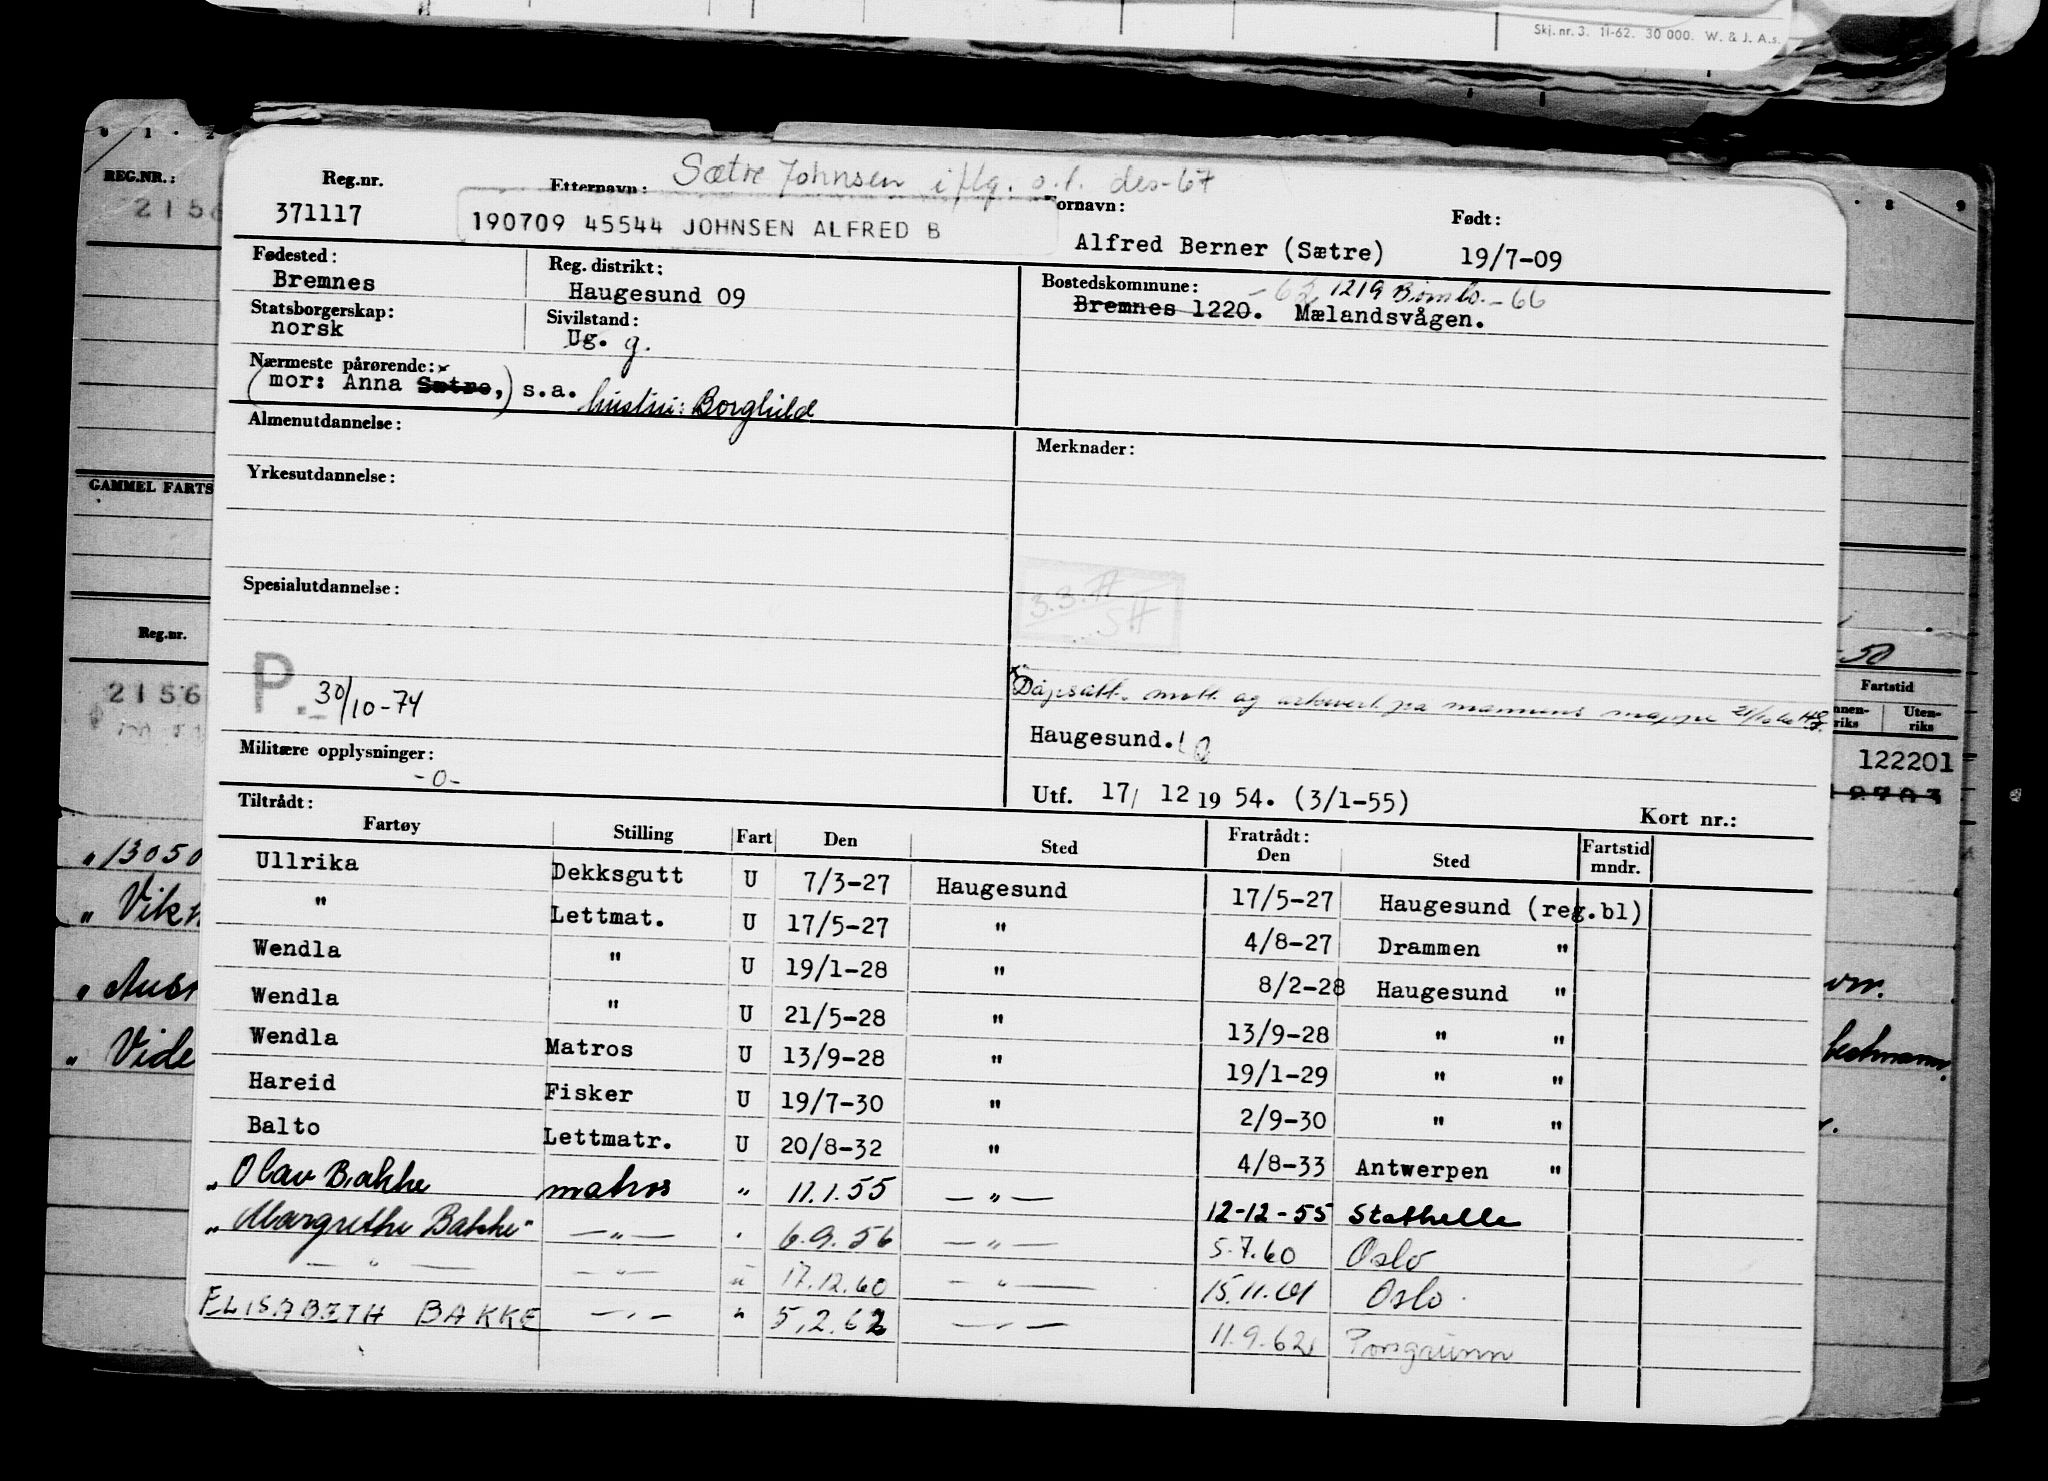 Skj. nr. 3. 11-62. 30 000. W. & J. A.s.
0 1 · 2
· 8 9
REG.NR.:
GAMMEL FARTS
Reg.nr.
Sætre Johnsen iflg. s.l. des-67
Reg.nr. Etternavn: Fornavn: Født:
371117 190709 45544 JOHNSEN ALFRED B Alfred Berner (Sætre) 19/7-09
Fødested: Reg. distrikt: Bostedskommune: -62 1219 Bømlo -66
Bremnes Haugesund 09 Bremnes 1220. Mælandsvågen.
Statsborgerskap: Sivilstand:
norsk Ug. g.
Nærmeste pårørende:
(mor: Anna Sætre,) s.a. hustru: Borghild
Almenutdannelse: Merknader:
Yrkesutdannelse:
Spesialutdannelse:
3.3.
P. 30/10-74
Dåpsatt. mott. og arkivert på mannens mappe
Haugesund.
Militære opplysninger:
-0-
Utf. 17/ 12 19 54. (3/1-55) Kort nr.:
Tiltrådt: Fratrådt:
Fartøy Stilling Fart Den Sted Den Sted Fartstid mndr.
Ullrika Dekksgutt U 7/3-27 Haugesund 17/5-27 Haugesund (reg.bl)
" Lettmat. U 17/5-27 " 4/8-27 Drammen "
Wendla " U 19/1-28 " 8/2-28 Haugesund "
Wendla " U 21/5-28 " 13/9-28 " "
Wendla Matros U 13/9-28 " 19/1-29 " "
Hareid Fisker U 19/7-30 " 2/9-30 " "
Balto Lettmatr. U 20/8-32 " 4/8-33 Antwerpen "
„ Olav Bakke matros " 11.1.55 — " — 12-12-55 Stathelle
„ Margrethe Bakke" — " — " 6.9.56 — " — 5.7.60 Oslo
— " — — " — " 17.12.60 — " — 15.11.61 Oslo
ELISABETH BAKKE — " — " 5.2.62 — " — 11.9.62 Porsgrunn
-50
Fartstid
Innen-riks Uten-riks
122201
„ 13050